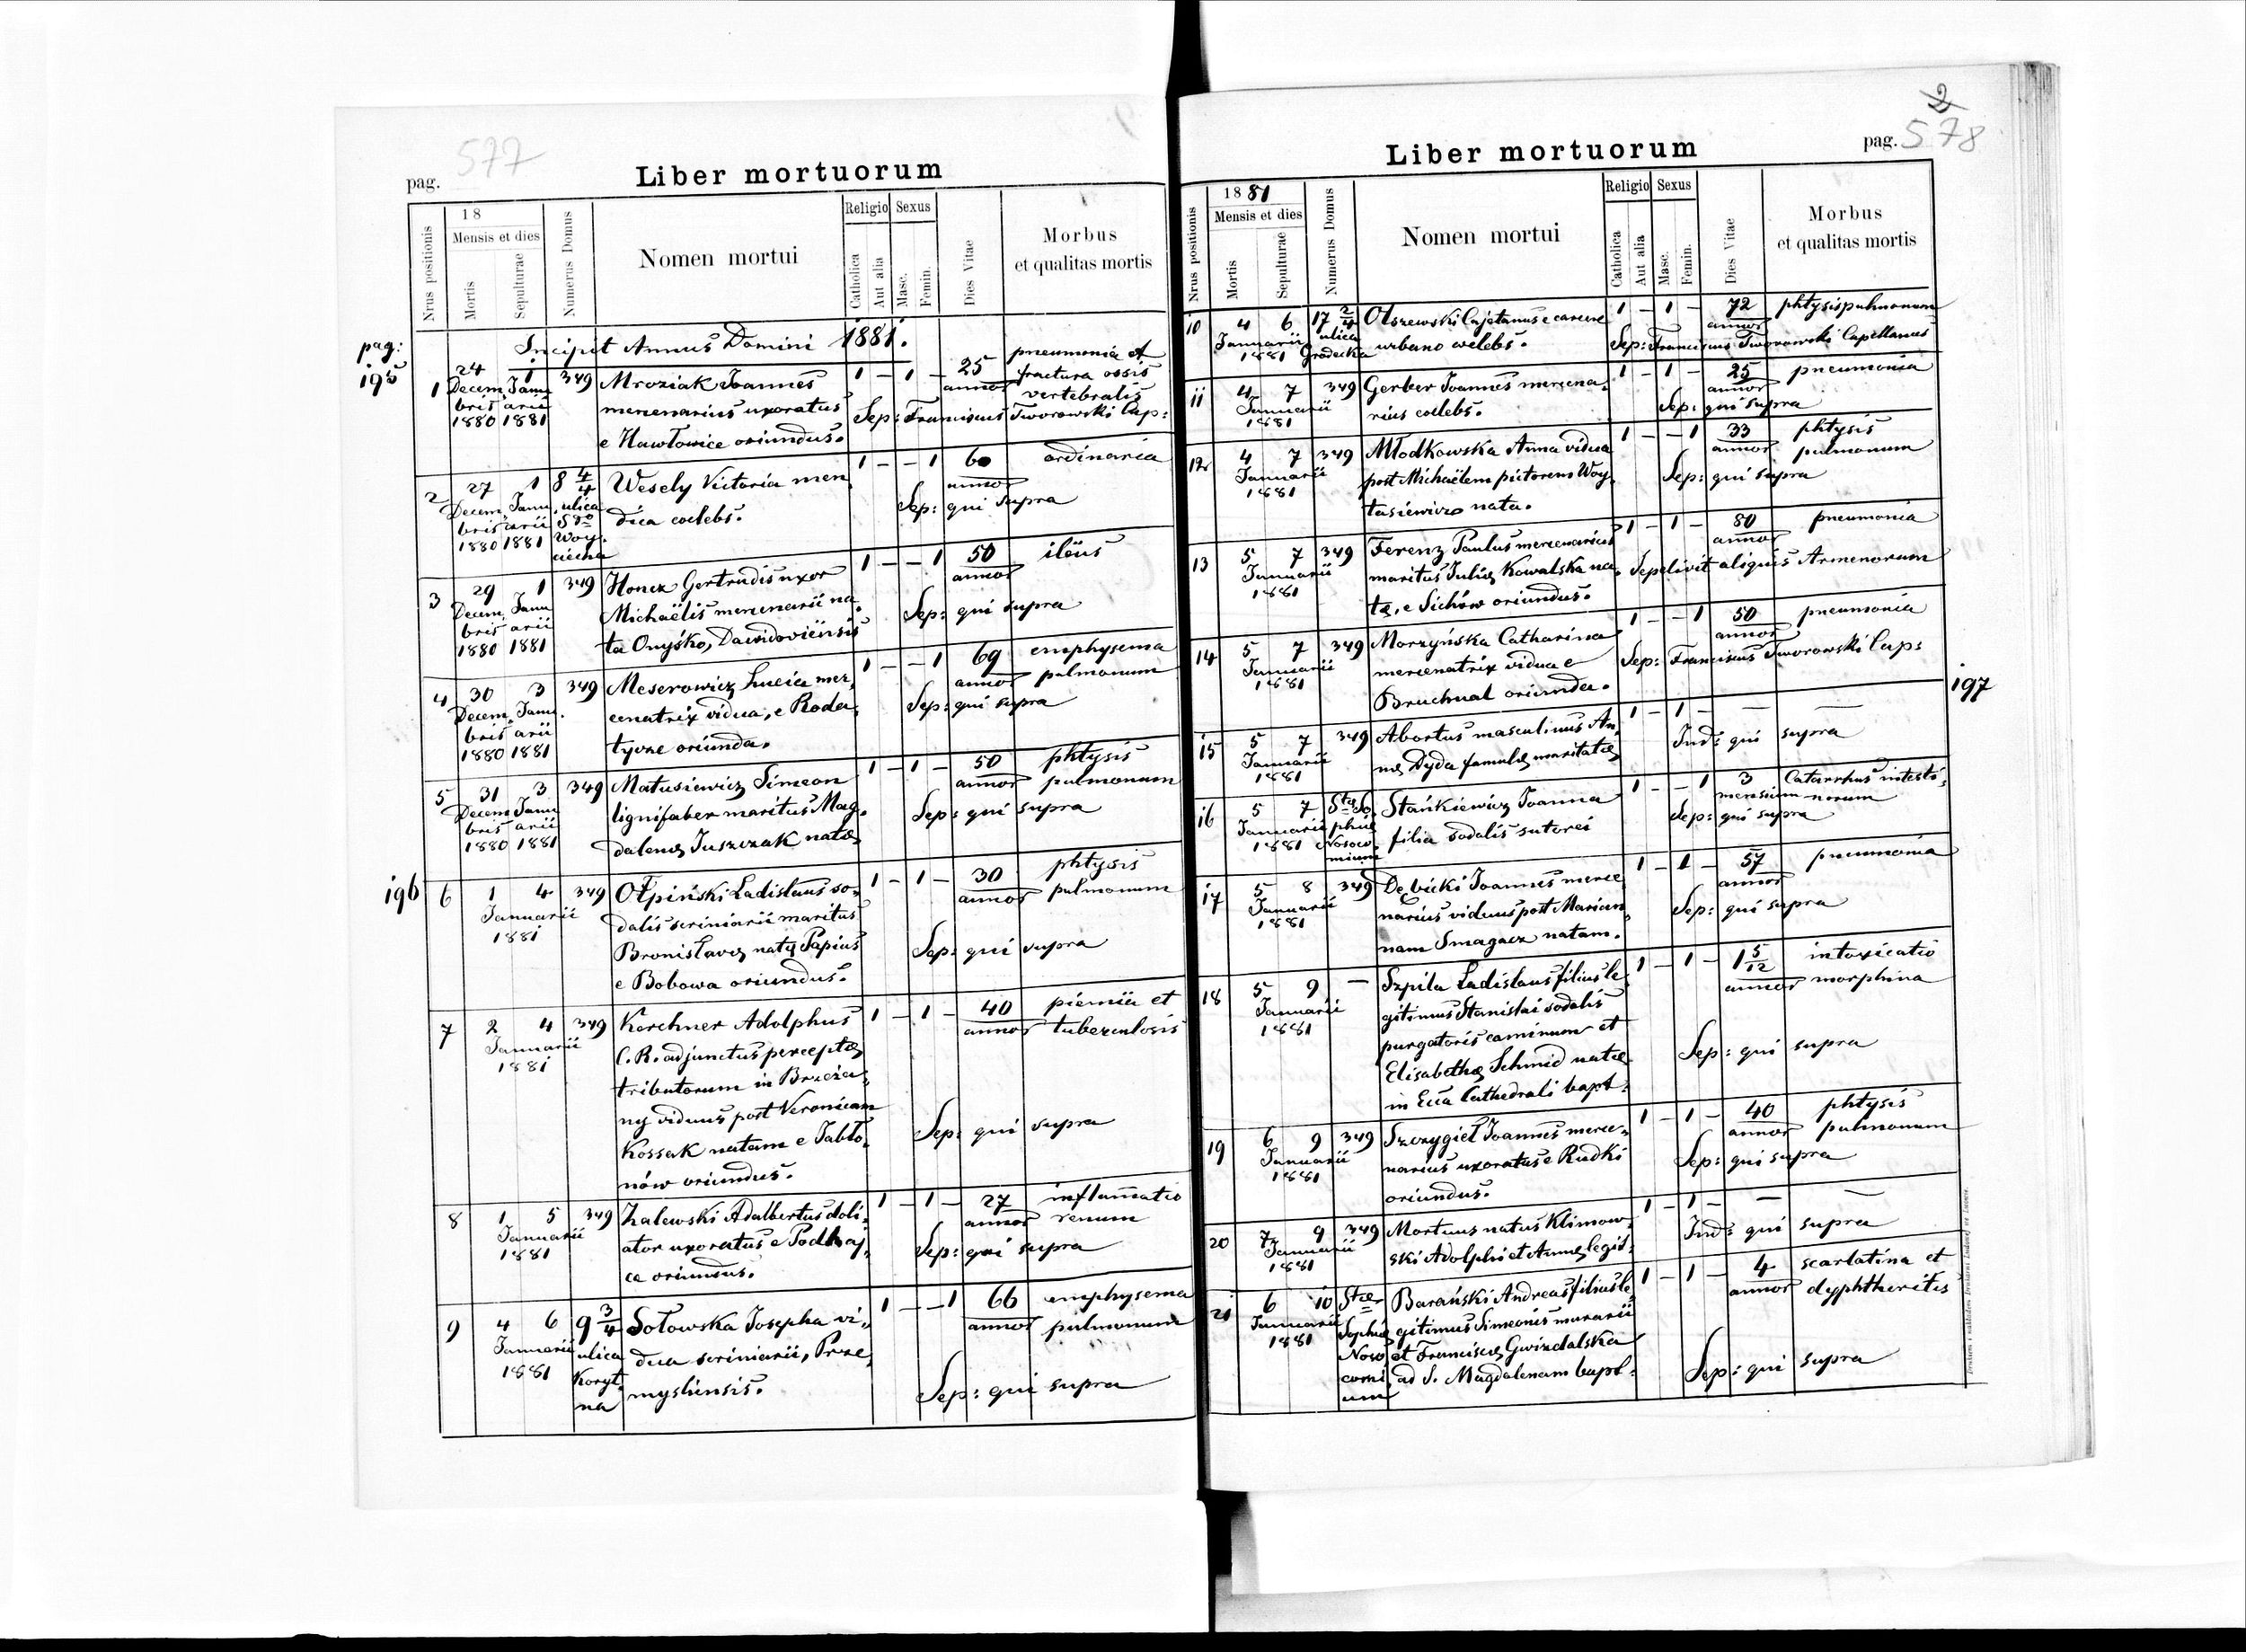 577
pag.
Liber mortuorum
Nrus positionis
18
Mensis et dies
Mortis
Sepulturae
Numerus Domus
Nomen mortui
Religio
Catholica
Aut alia
Sexus
Masc.
Femin.
Dies Vitae
Morbus
et qualitas mortis
Incipit Annus Domini 1881.
pag:
195
1 24 1 349 Mroziak Joannes 1 – 1 – 25 pneumonia et
Decem Janu mercenarius uxoratus annor fractura ossis
bris arii e Hawłowice oriundus. vertebralis
1880 1881 Sep: Franciscus Tworowski Cap:
2 27 1 8 4/4 Wesely Victoria men 1 – – 1 60 ordinaria
Decem, Janu, ulica dica coelebs. annor
bris arii Sgo Sep: qui supra
1880 1881 Woy,
ciecha
3 29 1 349 Honcz Gertrudis uxor 1 – – 1 50 ilëus
Decem, Janu Michaëlis mercenarii na, annor
bris arii ta Onyśko, Dawidoviënsis Sep: qui supra
1880 1881
4 30 3 349 Meserowicz Lucia mer, 1 – – 1 69 emphysema
Decem, Janu. cenatrix vidua, e Roda, annor pulmonum
bris arii tycze oriunda. Sep: qui supra
1880 1881
5 31 3 349 Matusiewicz Simeon 1 – 1 – 50 phtysis
Decem Janu lignifaber maritus Mag, annor pulmonum
bris arii dalenę Juszczak natę Sep: qui supra
1880 1881
196
6 1 4 349 Ołpiński Ladislaus so, 1 – 1 – 30 phtysis
Januarii dalis scriniarii maritus annor pulmonum
1881 Bronislavę natę Papius Sep: qui supra
e Bobowa oriundus.
7 2 4 349 Korchner Adolphus 1 – 1 – 40 piemiä et
Januarii C. R. adjunctus perceptę annor tuberculosis
1881 tributorum in Brzeża,
ny viduus post Veronicam
Kossak natam e Jabło, Sep: qui supra
nów oriundus.
8 1 5 349 Zalewski Adalbertus doli, 1 – 1 – 27 inflamatio
Januarii ator uxoratus e Podhaj, annor renum
1881 ce oriundus. Sep: qui supra
9 4 6 9 3/4 Sołowska Josepha vi, 1 – – 1 66 emphysema
Januarii ulica dua scriniarii, Prze, annor pulmonum
1881 Koryt, myśliensis. Sep: qui supra
na
2
578
pag.
Liber mortuorum
Nrus positionis
1881
Mensis et dies
Mortis
Sepulturae
Numerus Domus
Nomen mortui
Religio
Catholica
Aut alia
Sexus
Masc.
Femin.
Dies Vitae
Morbus
et qualitas mortis
10 4 6 17 2/4 Olszewski Cajetanus e carcere 1 – 1 – 72 phtysis pulmonum
Januarii ulica urbano coelebs. annor
1881 Grodecka Sep: Franciscus Tworowski Capellanus
11 4 7 349 Gerber Joannes mercena, 1 – 1 – 25 pneumonia
Januarii rius coelebs. annor
1881 Sep: qui supra
12 4 7 349 Młodkowska Anna vidua 1 – – 1 33 phtysis
Januarii post Michaëlem pictorem Woy, annor pulmonum
1881 tasiewicz nata. Sep: qui supra
13 5 7 349 Ferenz Paulus mercenarius 1 – 1 – 80 pneumonia
Januarii maritus Julię Kowalska na, annor
1881 tę, e Sichów oriundus. Sepelivit aliquis Armenorum
14 5 7 349 Morzyńska Catharina 1 – – 1 50 pneumonia
Januarii mercenatrix vidua e annor
1881 Bruchnal oriunda. Sep: Franciscus Tworowski Cap:
197
15 5 7 349 Abortus masculinus An, 1 – 1 – — —
Januarii nę Dyda famulę maritatę Ind: qui supra
1881
16 5 7 Stę So, Stańkiewicz Joanna 1 – – 1 3 Catarrhus intesti,
Januarii phię filia sodalis sutorei mensium norum
1881 Nosoco, Sep: qui supra
mium
17 5 8 349 Dębicki Joannes merce 1 – 1 – 57 pneumonia
Januarii narius viduus post Marian, annor
1881 nam Smagacz natam. Sep: qui supra
18 5 9 — Szpila Ladislaus filius le 1 – 1 – 1 5/12 intoxicatio
Januarii gitimus Stanislai sodalis annor morphina
1881 purgatoris caminum et
Elisabethę Schmid natę Sep: qui supra
in Ecca Cathedrali bapt:
19 6 9 349 Szczygieł Joannes merce, 1 – 1 – 40 phtysis
Januarii narius uxoratus e Rudki annor pulmonum
1881 oriundus. Sep: qui supra
20 7 9 349 Mortuus natus Klimow, 1 – 1 – — —
Januarii ski Adolphi et Annę legit: Ind: qui supra
1881
21 6 10 Stae Barański Andreas filius le, 1 – 1 – 4 scarlatina et
Januarii Sophię gitimus Simeonis murarii annor dyphtheritis
1881 Noso et Franciscę Gwizdalska
comi, ad S. Magdalenam bapt: Sep: qui supra
um